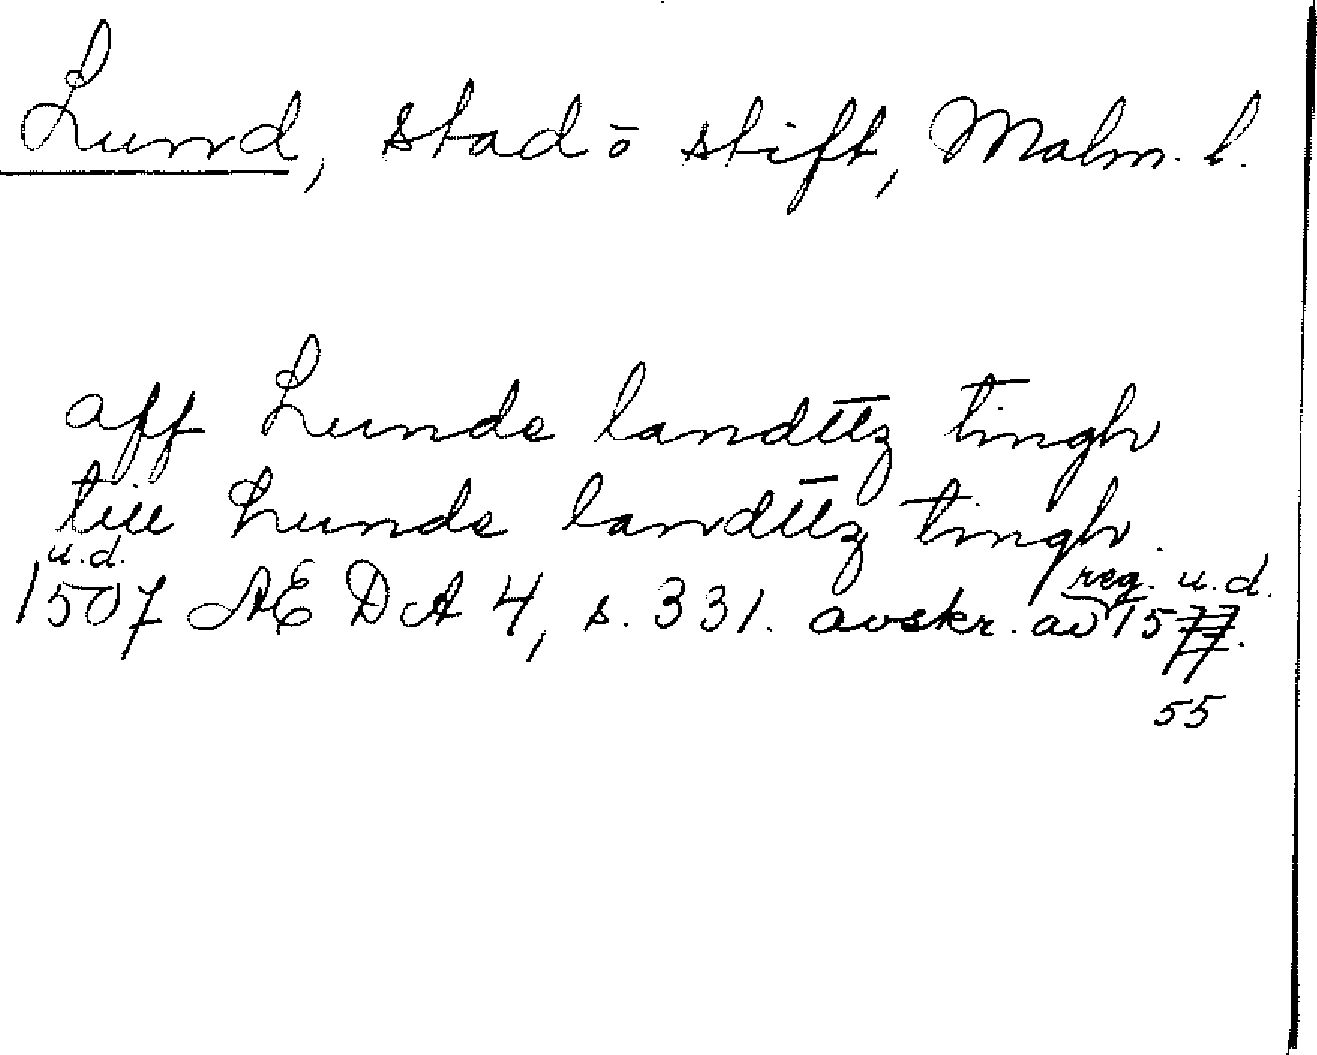 Lund, stad o stift, Malm. l.
aff Lunde landttz tingh
till Lunde landttz tingh.
u.d. reg. u.d.
1507 AEDA 4, s. 331. avskr. av 1577.
55